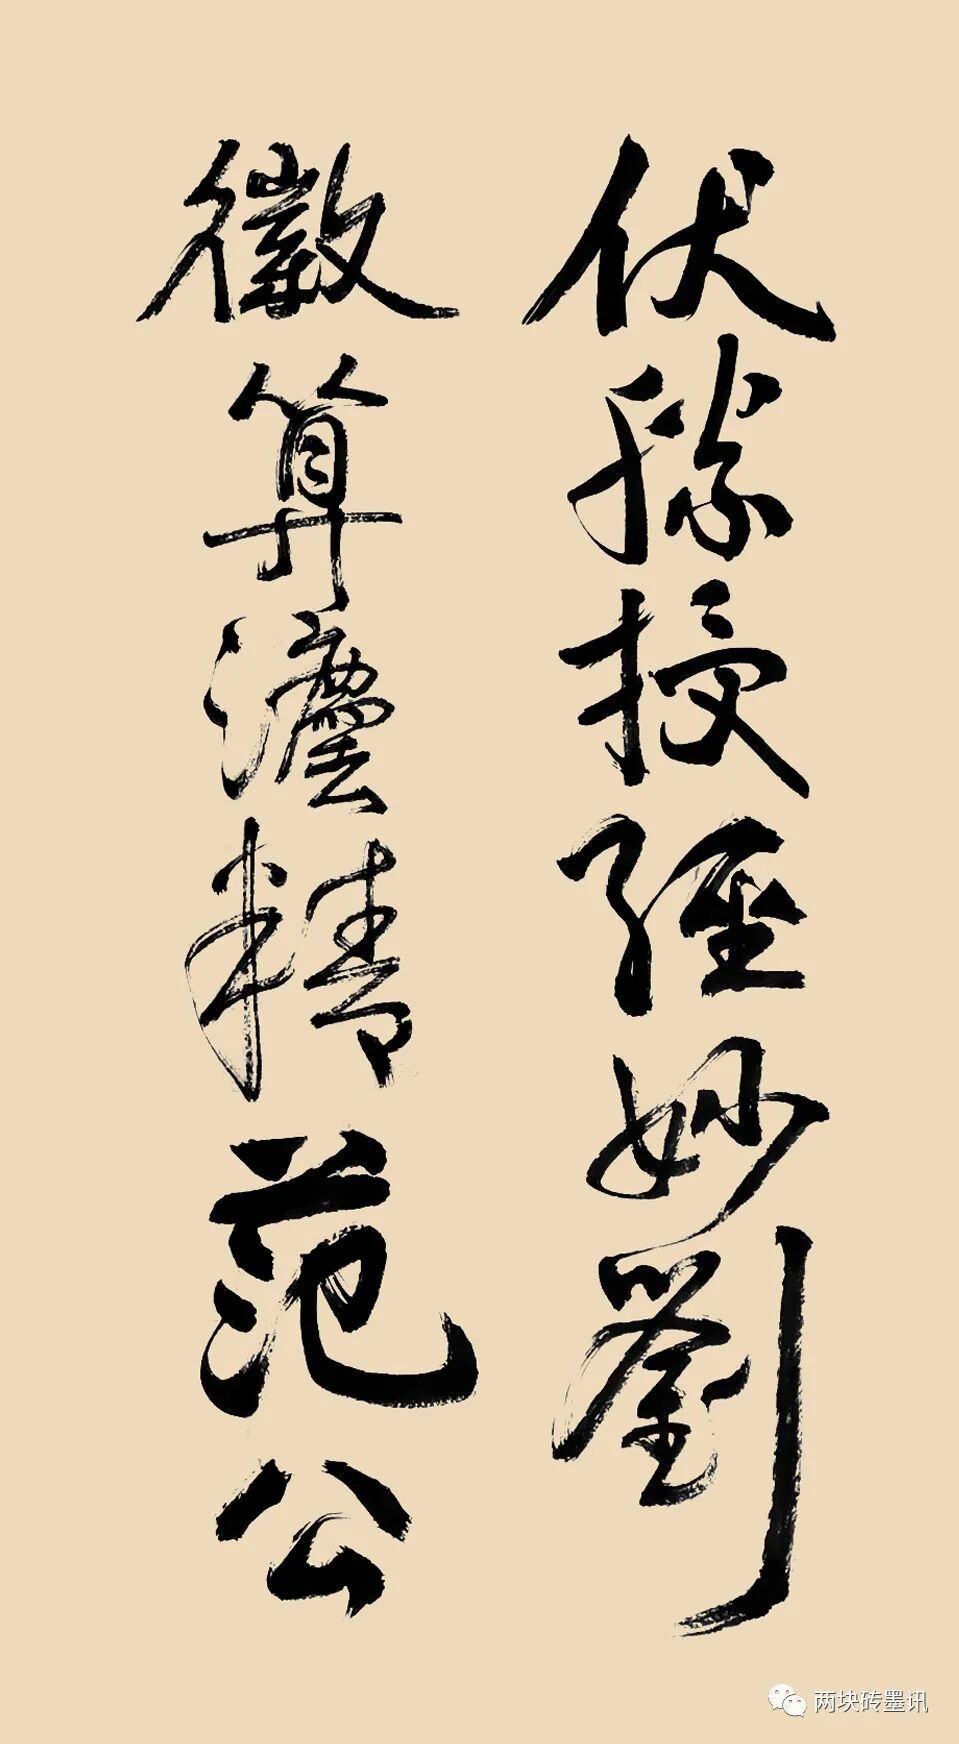 伏勝授經妙劉
徽算灋精范公
两块砖墨讯